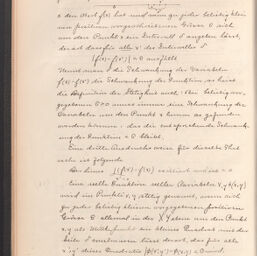 a den Wert f(x) hat und wenn zu jeder beliebig klei-
nen positiven vorgeschriebenen Grösse ε sich
um den Punkt x ein Intervall δ angeben lässt,
der auf dass für alle x' des Intervalles δ
|f(x)-f(x')| < ε ausfällt
Nennt man die Schwankung der Variabeln
f(x)-f(x') die Schwankung der Funktion, so heisst
die Definition der Stetigkeit auch: Bei beliebig vor-
gegebenem ε>0 muss immer eine Schwankung der
Variabeln um den Punkt x herum so gefunden
werden können, dass die entsprechende Schwankung
der Funktion < ε bleibt.
Eine dritte Ausdrucksweise für dieselbe That
sache ist folgende
Der limes |f(x')-f(x)| existiert und ist = 0
Eine reelle Funktion reeller Variabeln x, y f(x,y)
wird im Punkte x, y stetig genannt, wenn sich
zu jeder beliebig kleinen vorgegebenen positiven
Grösse ε allemal in der X Y Ebene um den Punkt
x, y als Mittelpunkt ein kleines Quadrat mit der
Seite δ construieren lässt derart, das für alle
x', y' dieses Quadrates |f(x,y)-f(x',y')| < ε wird.